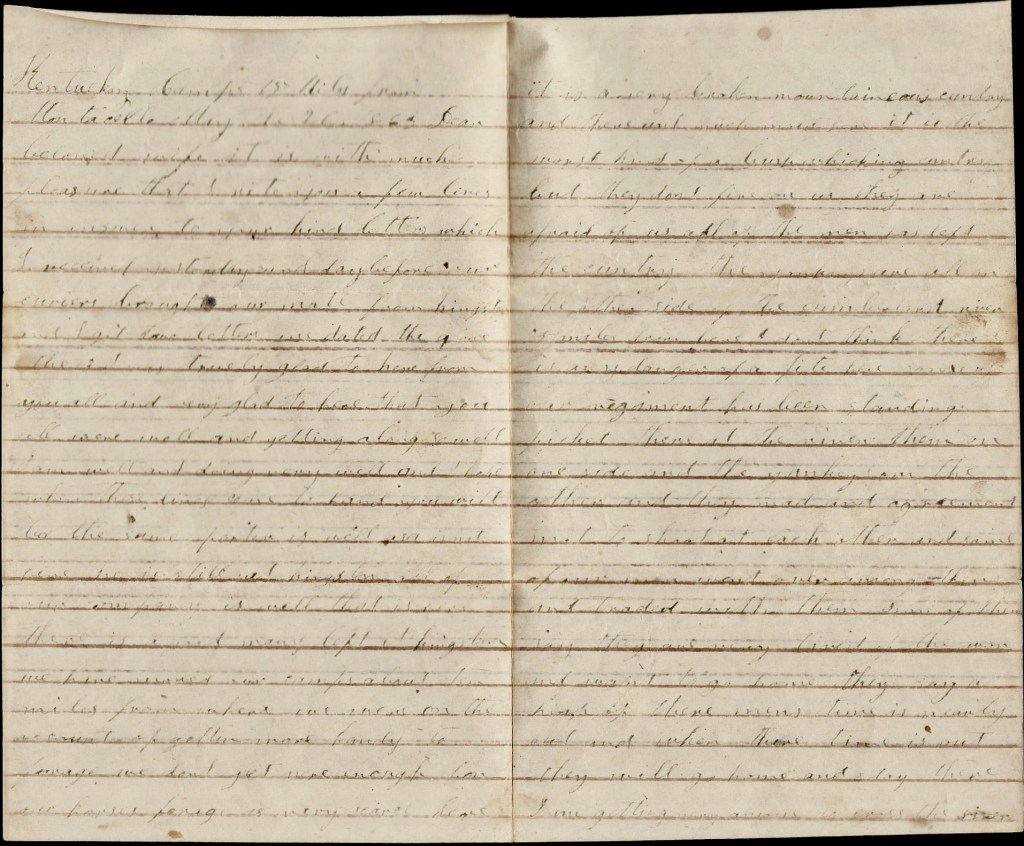 Kentucky Camp 15 Miles from
Monticello May 1863 Dear
beloved wife it is with much
pleasure that I rite you a few lines
in answer to your kind letter which
I received yesterday and day before our
curiers brought our male from kingston
and I got two letters
the truely glad to here from
you all and very glad to here that you
all were well and getting along well
I am well and doing very well and I hope
when this come to hand you will
be the same is well
here he is still at kingston all of
our company is well that is here
there is a good many left at kingston
we have moved our camps about ten
miles from where we were on the
account of gettin more handy to
forage we dont get nere enough for
our horses forage is very scarce here
it is a very broken mountaineous cuntry
and there aint much it is the
worst kind of a bushwhicking cuntry
but they dont fire on us they are
afraid of us all of the men has left
the cuntry the yankeys are all on
the other side of the cumberland river
miles from here I dont think there
is any danger of a fite here some of
our regiment has been standing
picket there at the river them on
one side and the yankeys on the
other and they mad and agreement
not to shoot at each other and some
of our men went over among them
and traded with them some of them
say they are very tired of the war
and want to go home they say a
heap of there mens time is nearly
out and when there time is out
they will go home and stay there
I am getting to cross the river